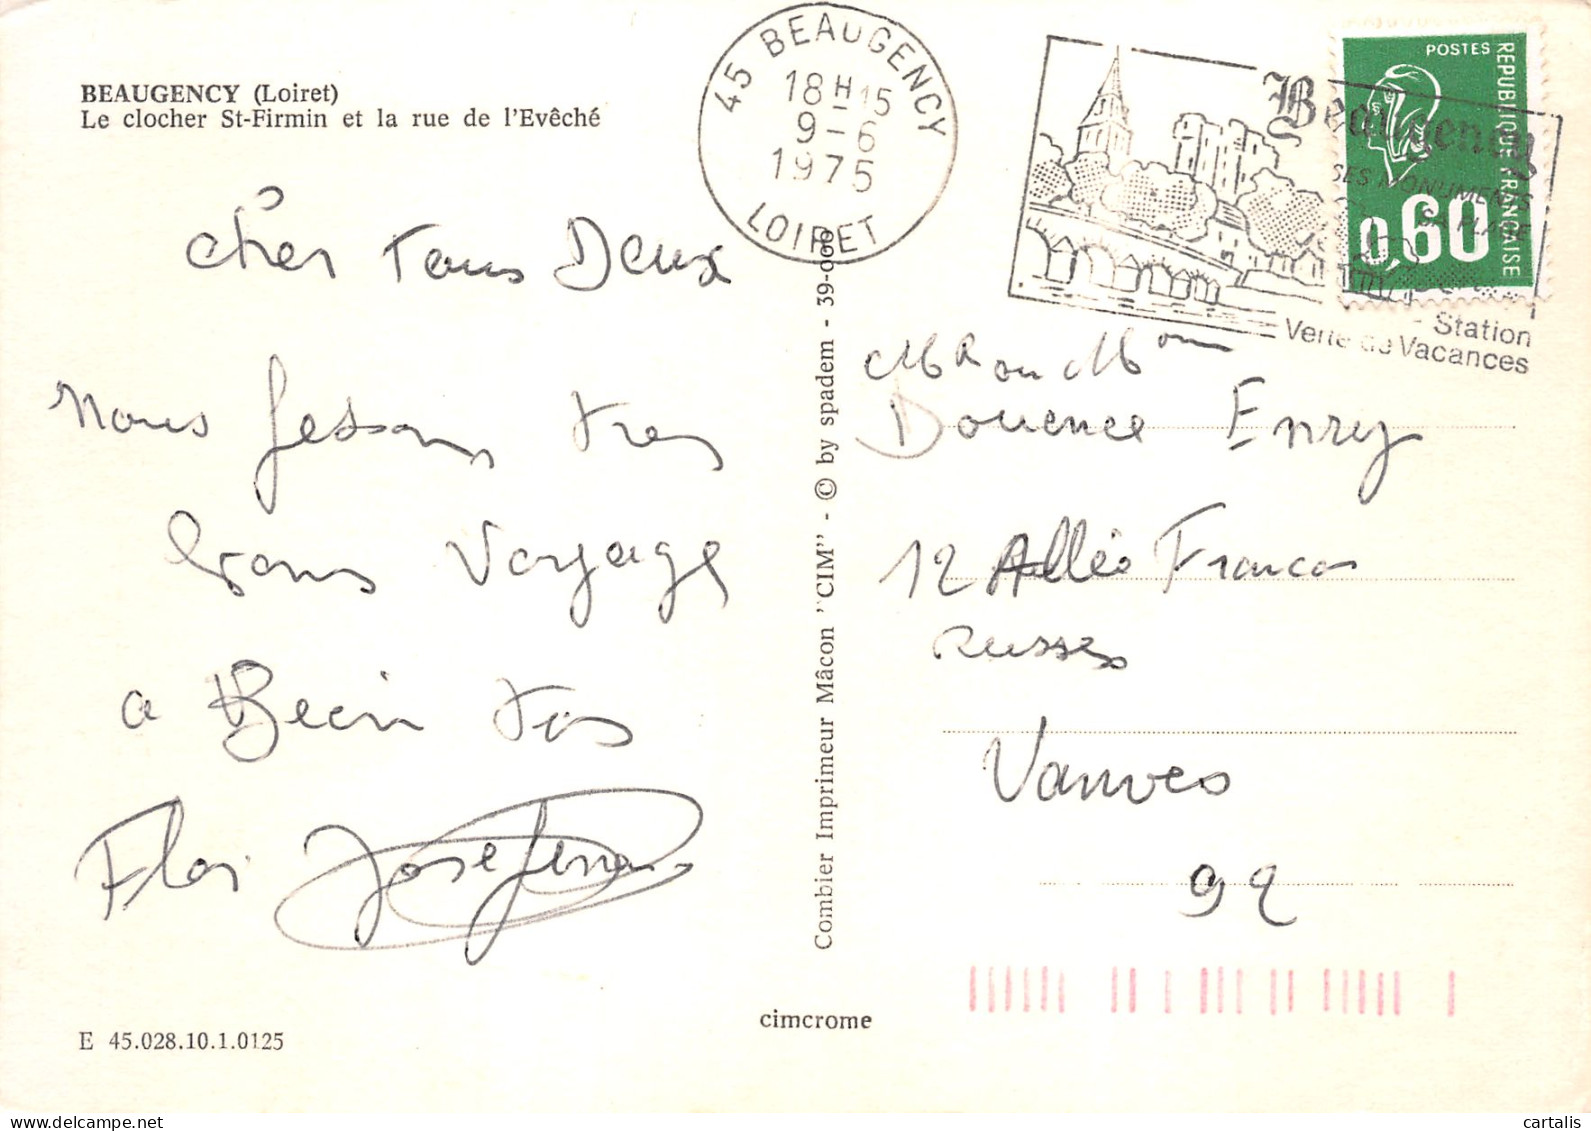 BEAUGENCY (Loiret)
Le clocher St-Firmin et la rue de l'Evêché
45 BEAUGENCY
18H15
9-6
1975
LOIRET
Beaugency
SES MONUMENTS
SA PLAGE
Station
Verte de Vacances
POSTES
REPUBLIQUE FRANÇAISE
0,60
cher Tous Deux
nous fesons tres
bons Voyage
a Bein tos
Flor Josefina
Mr ou Mm
Douence Enry
12 Allée Francos
russes
Vanves
92
Combier Imprimeur Mâcon "CIM" - © by spadem - 39-000
cimcrome
E 45.028.10.1.0125
delcampe.net
cartalis